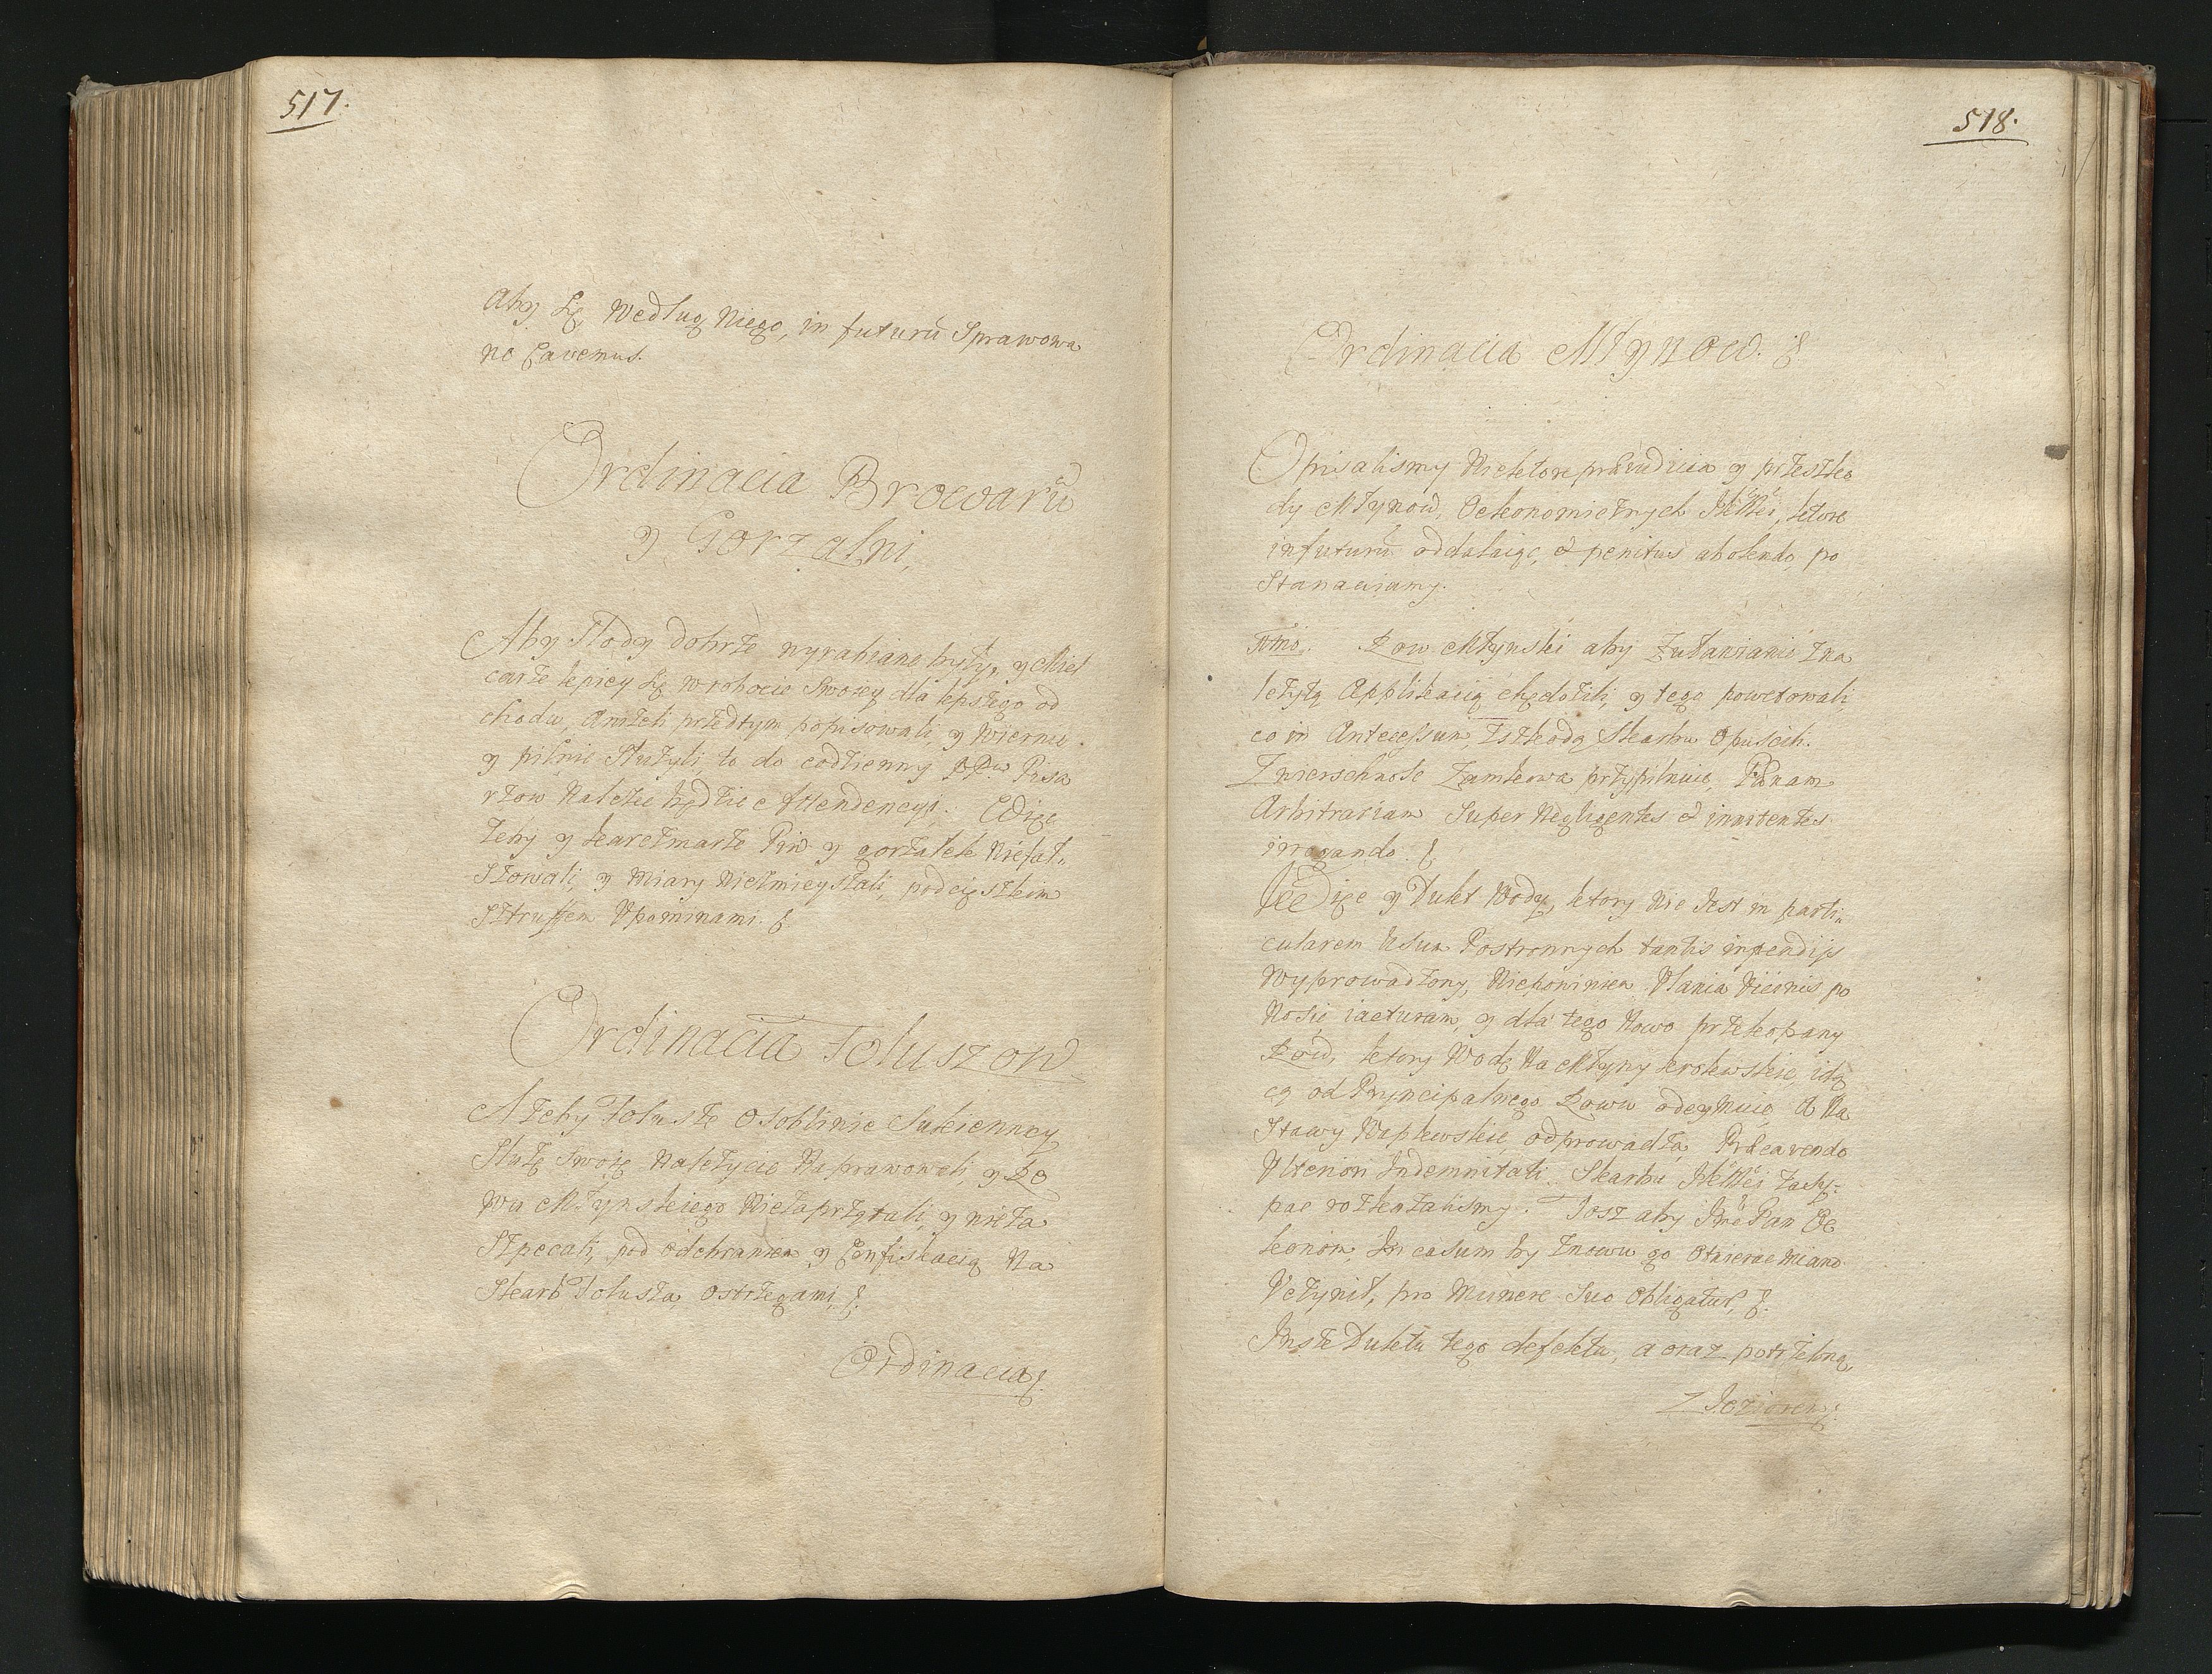 517.
Aby się Według Niego, in futurū Sprawowa
no Cavemus.
Ordinacia Browarū
y Gorzalni,
Aby Słody dobrze wyrabiane były, y Miel
carze lepiey się w robocie Swoiey dla lepszego od
chodu, Aniżeli przedtym popisowali, y Wiernie
y pilnie Służyli, to do codzienny PPw. Pisa
rzow Należeć będzie Attendencyi. Więc
żeby y karczmarze Piw y gorzałek Niefał„
szowali, y Miary Niezmieyszali, pod cięszkim
Sztruffem Upominami.
Ordinacia Foluszow
Ażeby Folusze Osobliwie Sukiennicy
Służę Swoię Należycie Naprawoweli, y Ro
wu Młynskiego Nieżaprzątali, y nieża
Szpecali, pod odebraniem y Confiskacią Na
Skarb Folusza ostrzegami,
Ordinacia
518.
Ordinacia Młynow.
Opisalismy Niektore præiudicia y przeszko
dy Młynow, Oekonomicznych JKMci, ktore
in futurū oddalaiąc, et penitus abolendo po
Stanawiamy.
1mo. Row Młynski aby Zuławianie Zna
leżytą Applikacią chędożili, y tego powetowali,
co in Antecessum, Zszkodą Skarbu Opuscili.
Zwierschnosc Zamkowa przypilnuie, Pænam
Arbitrariam Super Negligentes et invitentes
irrogando.
Więc y Dukt Wody, ktory Nie Jest in parti„
cularem Usum Postronnych tantis inpendijs
Wyprowadzony, Niepowinien Ulania Viernis po
Nosic iacturam, y dla tego Nowo przekopany
Row, ktory Wodę Na Młyny krolewskie, idą
cą od Pryncipalnego Rowu odeymuie, A Na
Stawy Waplewskie, odprowadza, Præcavendo
Ulteriori Indemnitati Skarbu JKMci zasy-
pac rozkazalismy. Tosz aby Jmć Pan Oe
konom, In casum by Znowu go Otwierac Miano
Uczynił, pro Munere Suo Obligatur,
Insze Duktu tego defekta, a oraz potrzebną
Z Jeziorem